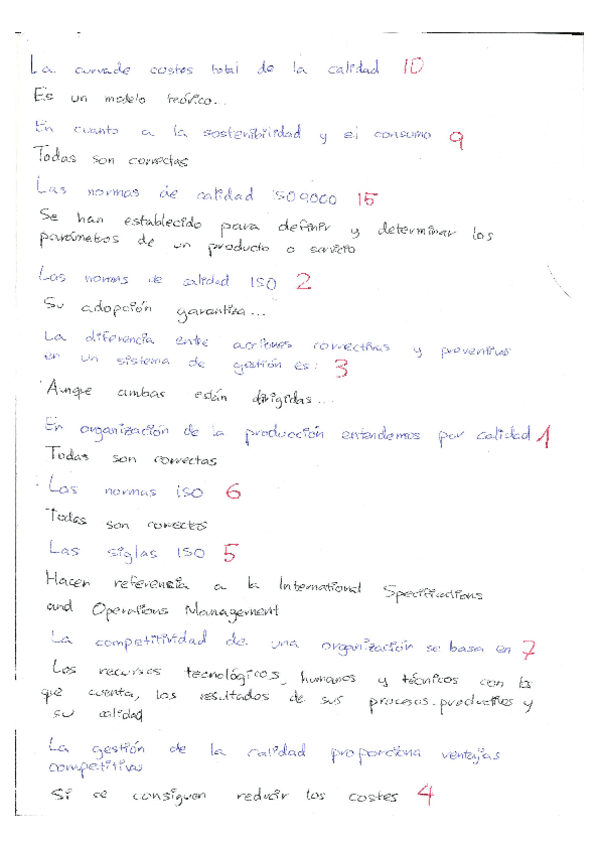 La curva de costes total de la calidad 10
Es un modelo teórico...
En cuanto a la sostenibilidad y el consumo 9
Todas son correctas
Las normas de calidad ISO 9000 15
Se han establecido para definir y determinar los
parámetros de un producto o servicio
Las normas de calidad ISO 2
Su adopción garantiza...
La diferencia entre acciones correctivas y preventivas
en un sistema de gestión es: 3
Aunque ambas están dirigidas...
En organización de la producción entendemos por calidad 1
Todas son correctas
Las normas iso 6
Todas son correctas
Las siglas ISO 5
Hacen referencia a la International Specifications
and Operations Management
La competitividad de una organización se basa en 7
Los recursos tecnológicos, humanos y técnicos con los
que cuenta, los resultados de sus procesos productivos y
su calidad
La gestión de la calidad proporciona ventajas
competitivas
Si se consiguen reducir los costes 4